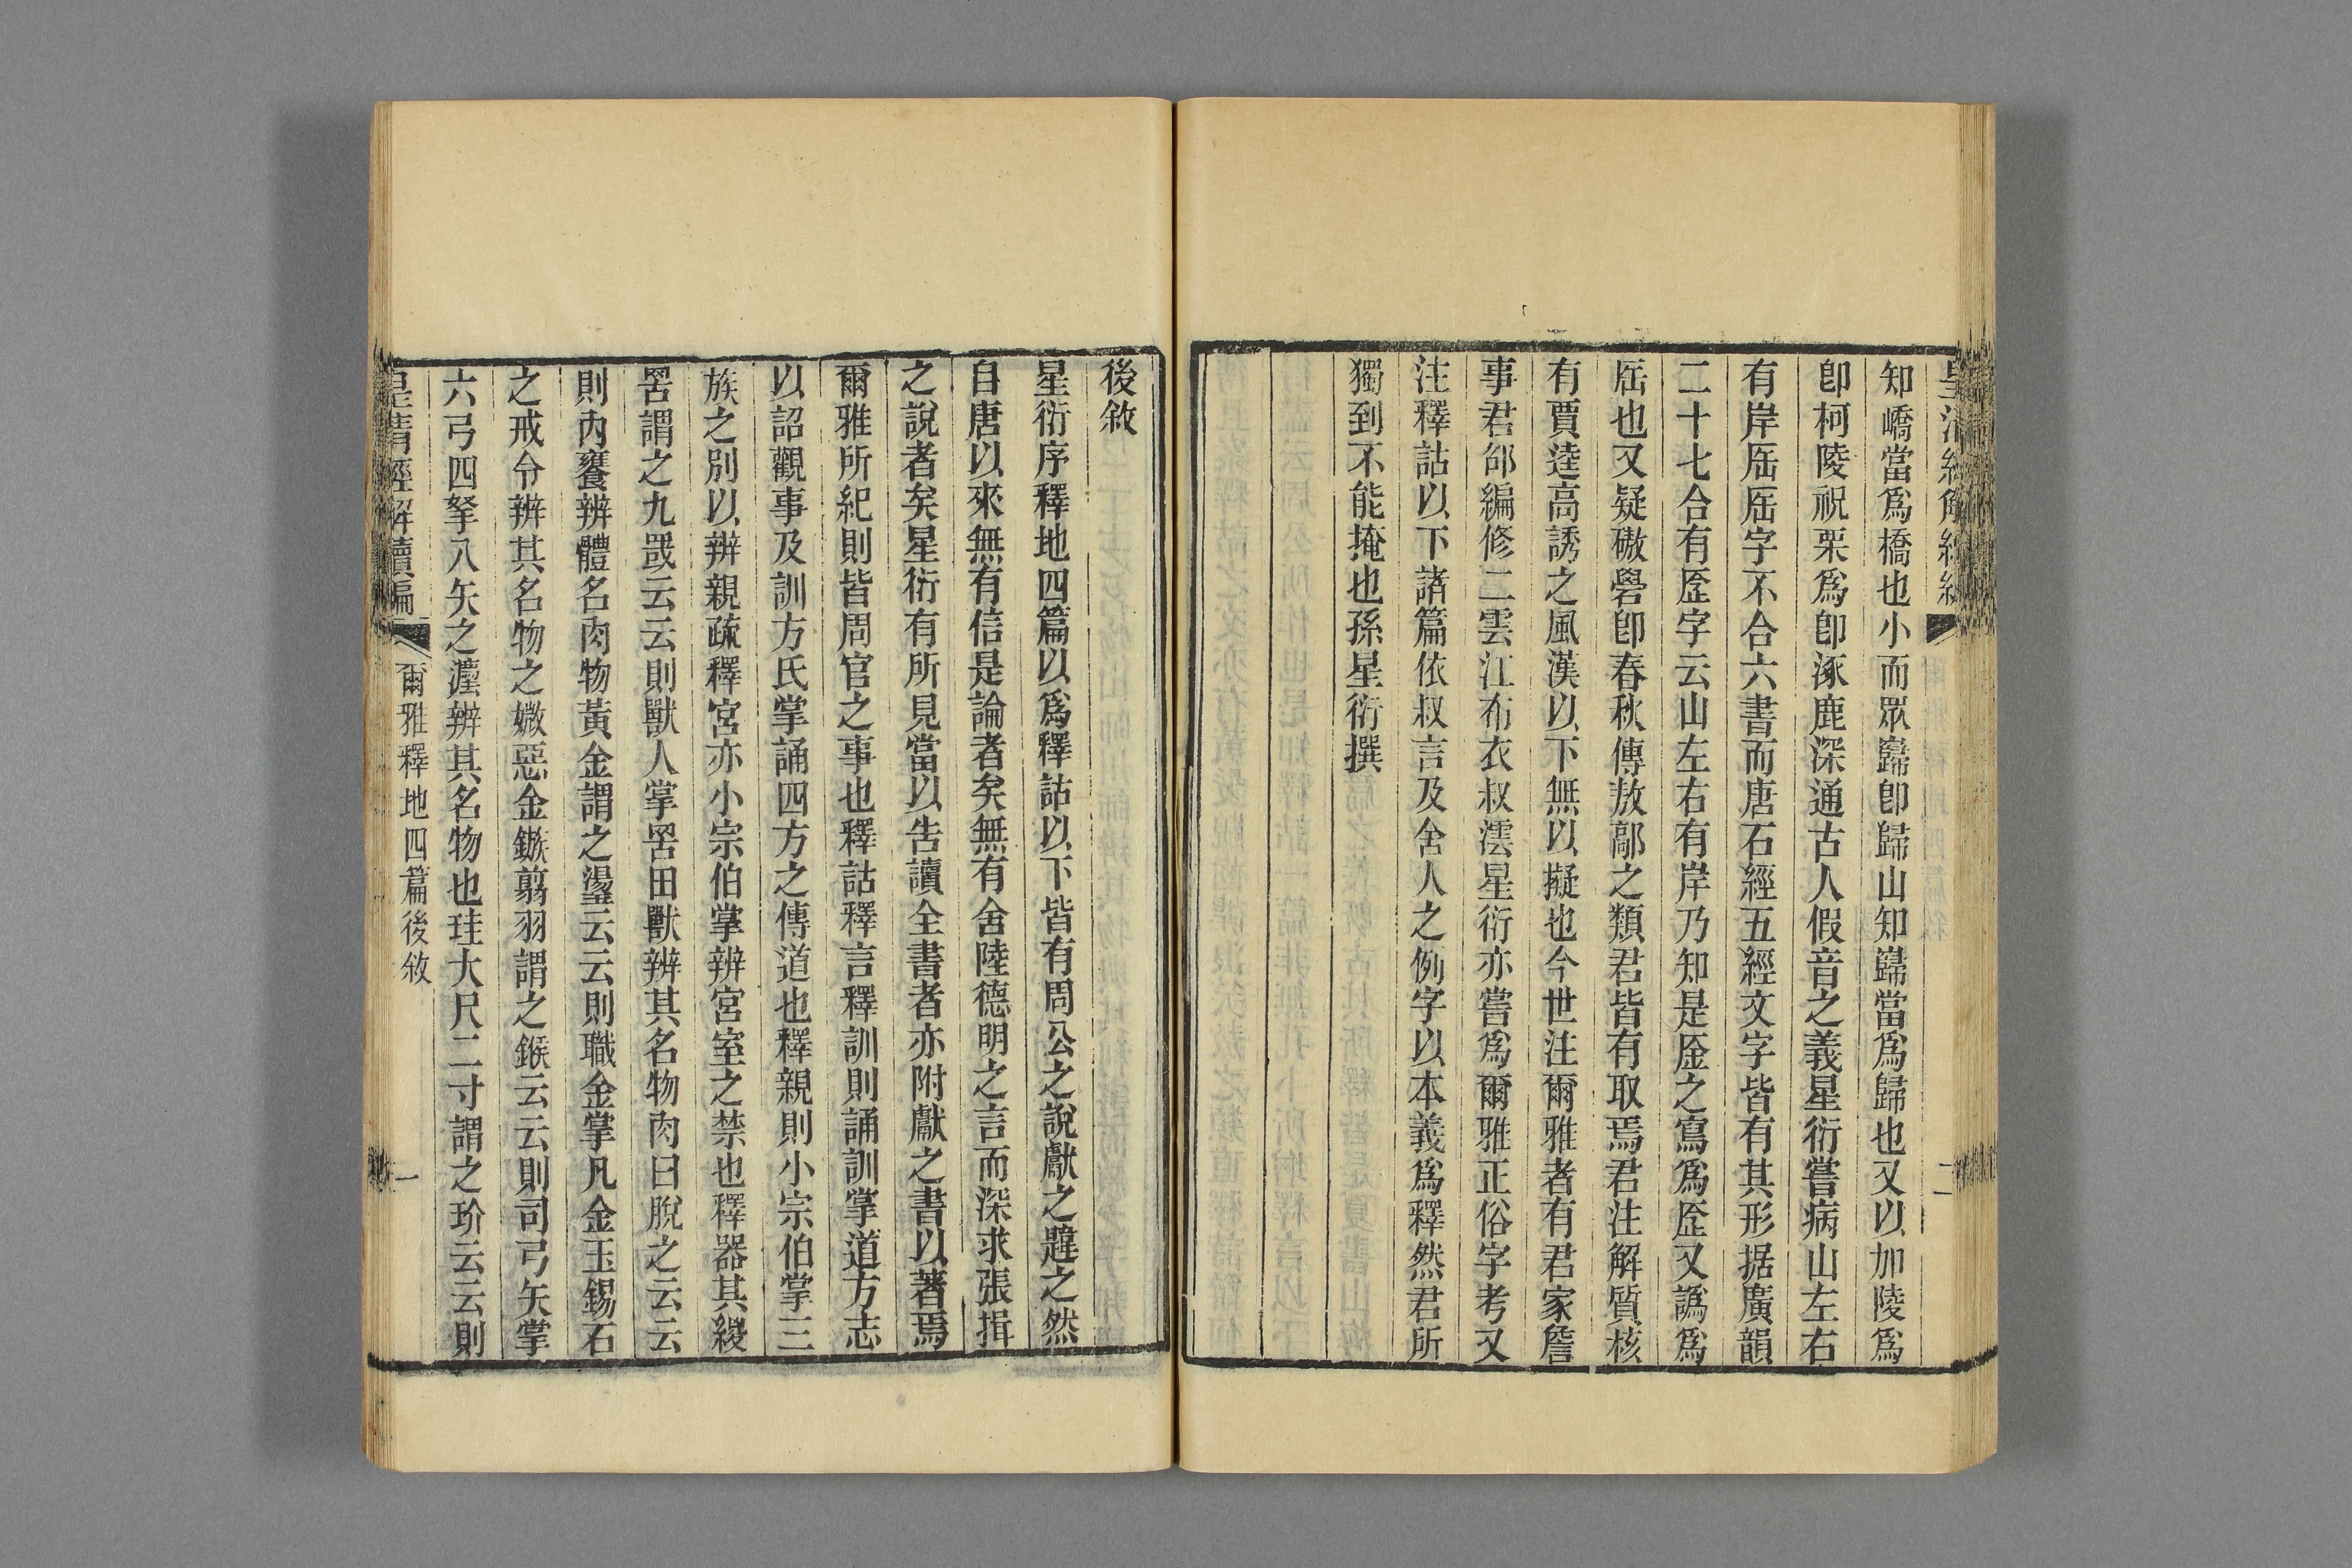 知嶠當爲橋也小而眾巋卽歸山知巋當爲歸也又以加陵爲
卽柯陵祝栗爲卽涿鹿深通古人假音之義星衍嘗病山左右
有岸厒厒字不合六書而唐石經五經文字皆有其形据廣韻
二十七合有厔字云山左右有岸乃知是厔之寫爲厔又譌爲
厒也又疑磝礐卽春秋傳敖鄗之類君皆有取焉君注解質核
有賈逵高誘之風漢以下無以擬也今世注爾雅者有君家詹
事君邵編修二雲江布衣叔澐星衍亦嘗爲爾雅正俗字考又
注釋詁以下諸篇依叔言及舍人之例字以本義爲釋然君所
獨到不能掩也孫星衍撰
二
後敘
星衍序釋地四篇以爲釋詁以下皆有周公之說獻之韙之然
自唐以來無有信是論者矣無有舍陸德明之言而深求張揖
之說者矣星衍有所見當以告讀全書者亦附獻之書以著焉
爾雅所紀則皆周官之事也釋詁釋言釋訓則誦訓掌道方志
以詔觀事及訓方氏掌誦四方之傳道也釋親則小宗伯掌三
族之別以辨親疏釋宮亦小宗伯掌辨宮室之禁也釋器其緵
罟謂之九罭云云則獸人掌罟田獸辨其名物肉曰脫之云云
則內饔辨體名肉物黃金謂之璗云云則職金掌凡金玉錫石
之戒令辨其名物之媺惡金鏃翦羽謂之鍭云云則司弓矢掌
六弓四弩八矢之灋辨其名物也珪大尺二寸謂之玠云云則
皇清經解續編
爾雅釋地四篇後敘
一